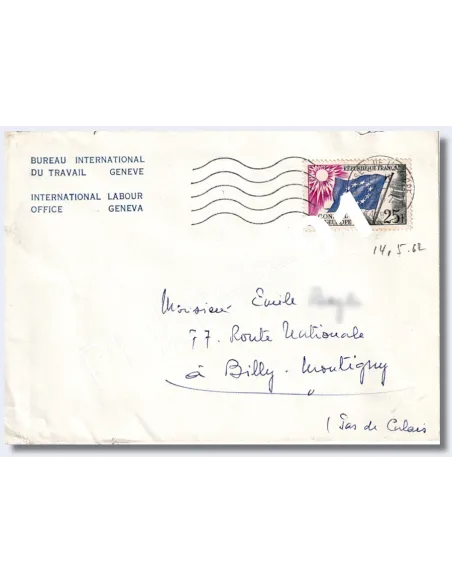 BUREAU INTERNATIONAL
DU TRAVAIL GENEVE
INTERNATIONAL LABOUR
OFFICE GENEVA
RÉPUBLIQUE FRANÇAISE
25F
14.5.62
Monsieur Emile
77. Route Nationale
à Billy-Montigny
(Pas de Calais